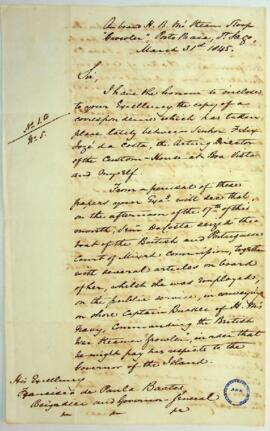 On board H. B. M's Steam Sloop
"Growler", Porto Praia, St. Iago
March 31st 1845.
Sir,
I have the honour to inclose
to your Excellency the copy of a
correspondence which has taken
place lately between Senhor Felix
José da Costa, the Acting Director
of the Custom-House at Boa Vista
and Myself.
No. 1 to
No. 5.
From a perusal of those
papers your Excy. will see that
on the afternoon of the 17th of this
month, Senr. Da Costa seized the
boat of the British and Portuguese
Court of Mixed Commission, together
with several articles on board
of her, whilst she was employed,
on the public service, in conveying
on shore Captain Buckle of H. M's
Navy, Commanding the British
War Steamer Growler, in order that
he might pay his respects to the
Governor of the Island.
His Excellency
Francisco de Paula Bastos
Brigadier and Governor-General